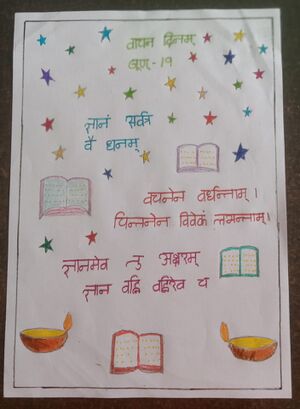 वाचन दिनम्
जूण - १९
ज्ञानं सर्वत्र
वै धनम्
वचनेन वर्धन्ताम् ।
चिन्तनेन विवेकं लसन्ताम् ।
ज्ञानमेव तु अक्षरम्
ज्ञान वह्नि वह्निरेव च